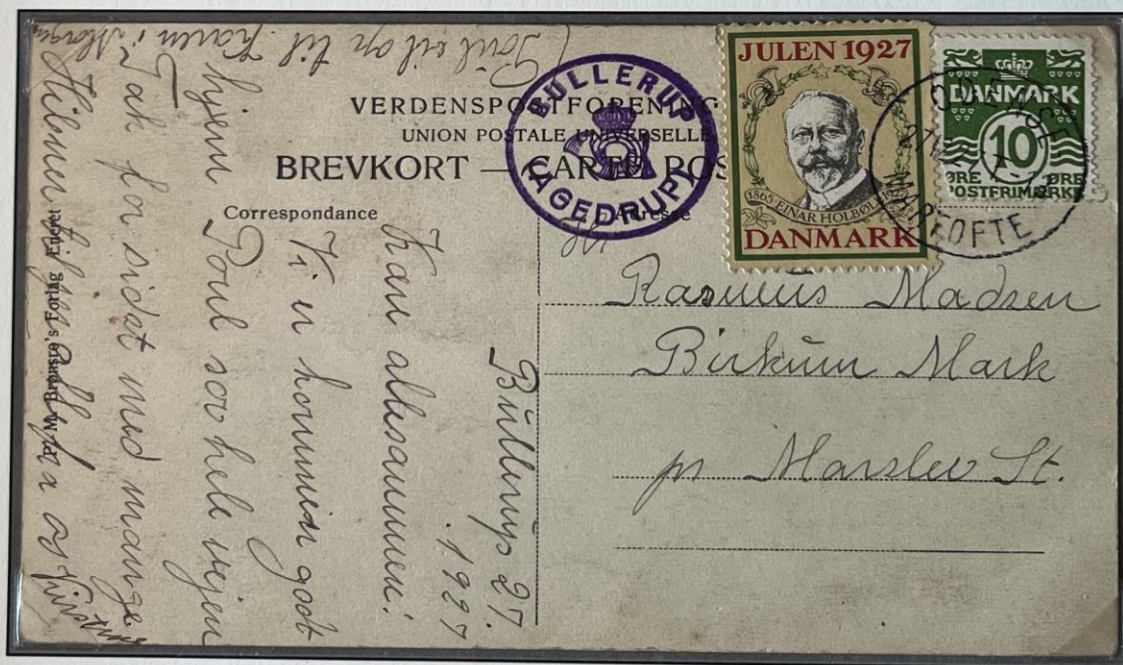 VERDENSPOSTFORENING
UNION POSTALE UNIVERSELLE
BREVKORT — CARTE POS
Correspondance
Adresse
BULLERUP
(AGEDRUP)
JULEN 1927
1865 EINAR HOLBØLL 1927
DANMARK
DANMARK
10
ØRE ØRE
POSTFRIMÆRKE
ODENSE
MARTOFTE
Hr
Rasmus Madsen
Birkum Mark
pr Marslev St.
Bullerup 27.
1927
Kære allesammen!
Vi er kommen godt
hjem Poul sov hele vejen
Tak for sidst med mange
Hilsner til jer alle fra os
Kirstine
(Poul vil op til Karen i
Morgen
P. M. Brønsro's Forlag Eneret